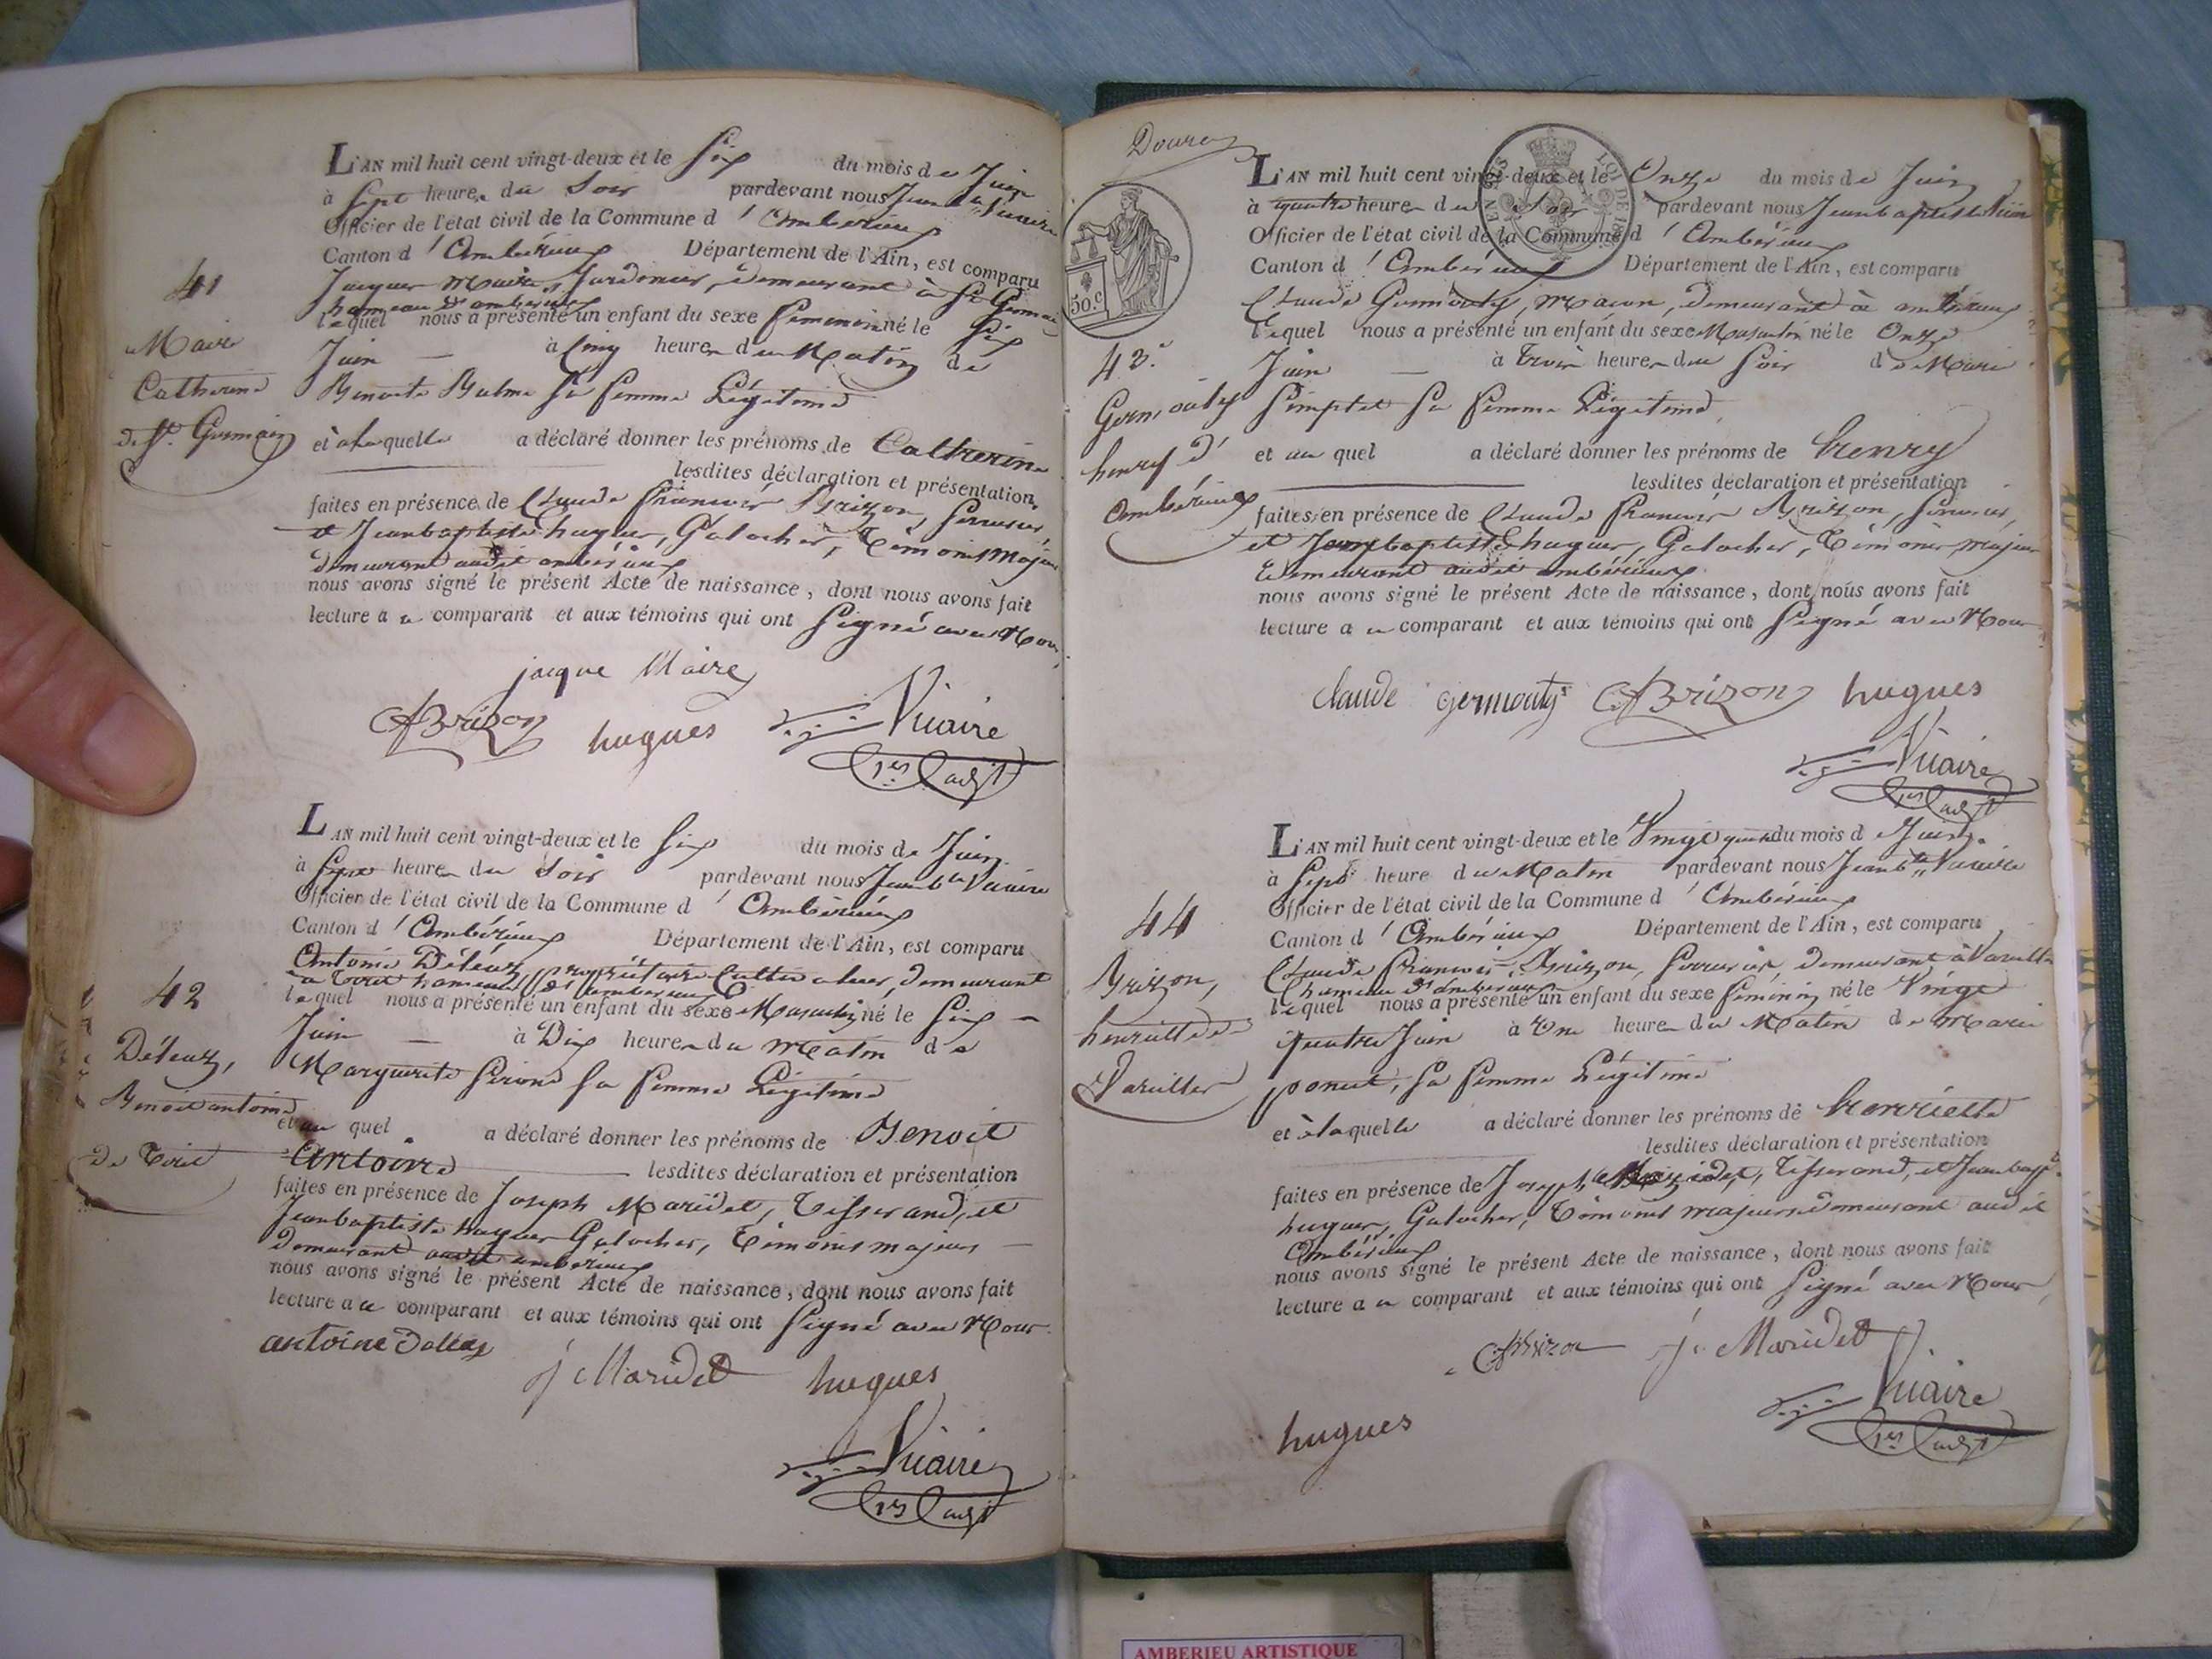 L'AN mil huit cent vingt-deux et le Six du mois de Juin
à Sept heures du Soir pardevant nous Jean bte Vicaire
Officier de l'état civil de la Commune d'Ambérieux
Canton d'Ambérieux Département de l'Ain, est comparu
Jacques Maire, demeurant à St Germain
hameau d'ambérieux
lequel nous a présenté un enfant du sexe feminin né le Six
Juin à Cinq heures du Matin de
Benoite Balme Sa femme Légitime
et à laquelle a déclaré donner les prénoms de Catherine
lesdites déclaration et présentation
faites en présence de Claude François Brizon, Serrurier,
et Jean baptiste hugues, Galocher, Témoins Majeurs
demeurant audit ambérieux
nous avons signé le présent Acte de naissance, dont nous avons fait
lecture au comparant et aux témoins qui ont Signé avec Nous
41
Maire
Catherine
de St. Germain
jaque Maire
CFBrizon hugues Vicaire
1er adjt
L'AN mil huit cent vingt-deux et le Six du mois de Juin
à Sept heures du Soir pardevant nous Jean bte Vicaire
Officier de l'état civil de la Commune d'Ambérieux
Canton d'Ambérieux Département de l'Ain, est comparu
Antoine Déléaz, Propriétaire Cultivateur, demeurant
à Tiret hameau d'ambérieux
lequel nous a présenté un enfant du sexe Masculin né le Six
Juin à Dix heures du Matin de
Marguerite Sa femme Légitime
et au quel a déclaré donner les prénoms de Benoit
Antoine lesdites déclaration et présentation
faites en présence de Joseph Maridet, Tisserand, et
Jean baptiste hugues Galocher, Témoins majeurs
demeurant audit ambérieux
nous avons signé le présent Acte de naissance, dont nous avons fait
lecture au comparant et aux témoins qui ont Signé avec Nous
42
Déléaz,
Benoit antoine
de Tiret
antoine
j Maridet hugues
Vicaire
1er adjt
50.c
EN SUS
LOI DE 1816
L'AN mil huit cent vingt-deux et le Onze du mois de Juin
à quatre heures du Soir pardevant nous Jean baptiste Vicaire
Officier de l'état civil de la Commune d'Ambérieux
Canton d'Ambérieux Département de l'Ain, est comparu
Claude Germouty, Maçon, demeurant à ambérieux
lequel nous a présenté un enfant du sexe Masculin né le Onze
Juin à trois heures du Soir de Marie
Simplet Sa femme Légitime
et au quel a déclaré donner les prénoms de henry
lesdites déclaration et présentation
faites en présence de Claude François Brizon, Serrurier,
et Jean baptiste hugues, Galocher, Témoins majeurs
demeurant audit ambérieux
nous avons signé le présent Acte de naissance, dont nous avons fait
lecture au comparant et aux témoins qui ont Signé avec Nous
43.
Germouty
henry d'
Ambérieux
claude germouty CFBrizon hugues
Vicaire
1er adjt
L'AN mil huit cent vingt-deux et le Vingt quatre du mois de Juin
à Sept heures du Matin pardevant nous Jean bte Vicaire
Officier de l'état civil de la Commune d'Ambérieux
Canton d'Ambérieux Département de l'Ain, est comparu
Claude François Brizon, Serrurier, demeurant à Vareilles
hameau d'ambérieux
lequel nous a présenté un enfant du sexe féminin né le Vingt
quatre Juin à Une heure du Matin de Marie
poncet, Sa femme Légitime
et à laquelle a déclaré donner les prénoms de henriette
lesdites déclaration et présentation
faites en présence de Joseph Maridet, Tisserand, et Jean bapte
hugues, Galocher, Témoins majeurs demeurant audit
Ambérieux
nous avons signé le présent Acte de naissance, dont nous avons fait
lecture au comparant et aux témoins qui ont Signé avec Nous
44
Brizon,
henriette de
Vareilles
CFBrizon j. Maridet
Vicaire
1er adjt
hugues
AMBERIEU ARTISTIQUE